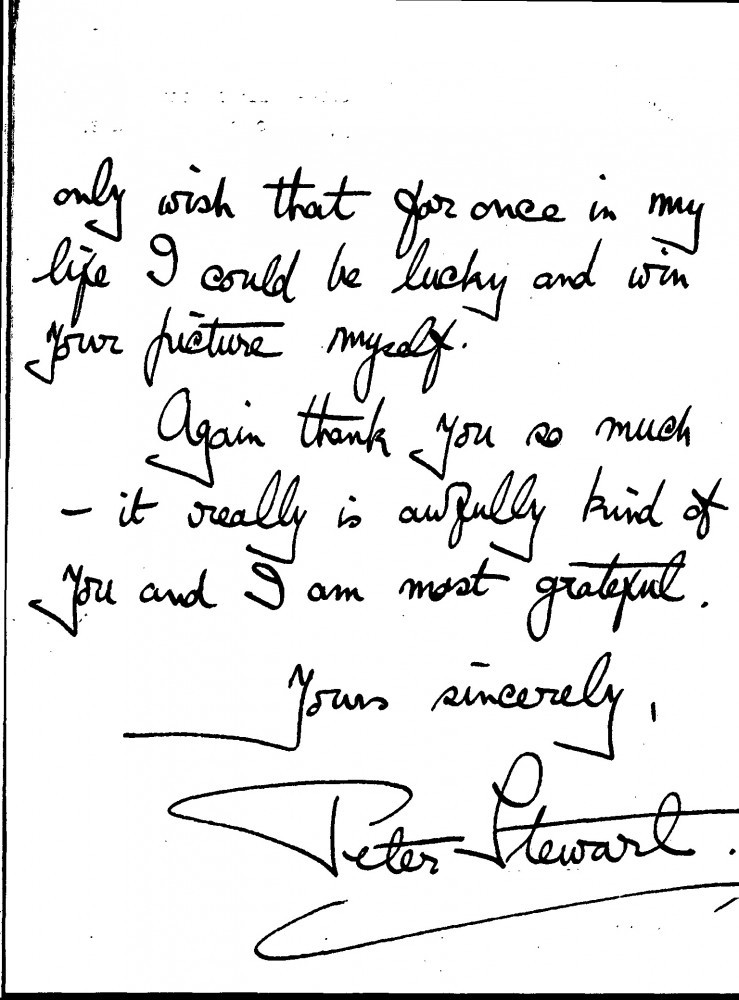 only wish that for once in my
life I could be lucky and win
your picture myself.
Again thank you so much
– it really is awfully kind of
you and I am most grateful.
Yours sincerely,
Peter Stewart.